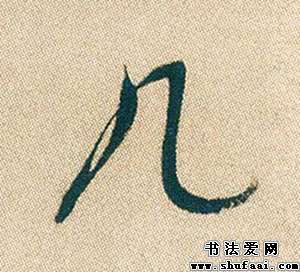 几
书法爱网
www.shufaai.com